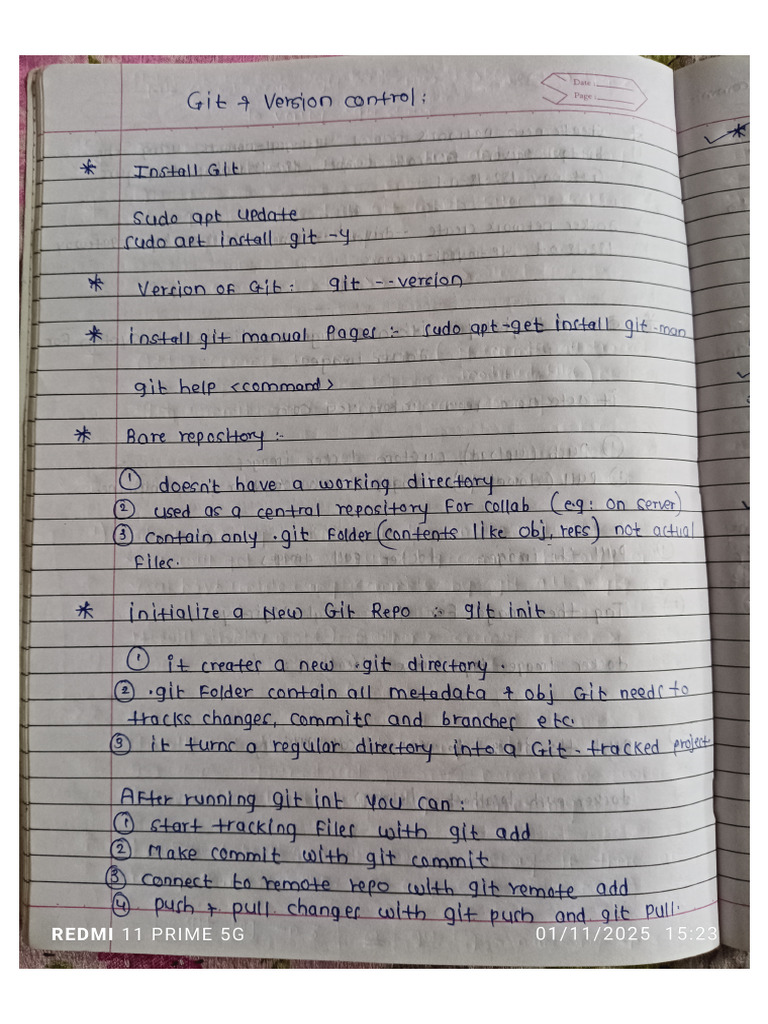 Date :
Page :
Git & Version control:
* Install Git
sudo apt update
sudo apt install git -y
* Version of Git: git --version
* install git manual Pages :- sudo apt-get install git-man
git help <command>
* Bare repository :-
① doesn't have a working directory
② used as a central repository for collab (eg: on server)
③ contain only .git folder (contents like obj, refs) not actual
files.
* initialize a New Git Repo :- git init
① it creates a new .git directory.
② .git folder contain all metadata & obj Git needs to
tracks changes, commits and branches etc.
③ it turns a regular directory into a Git-tracked project
After running git int you can:
① start tracking files with git add
② Make commit with git commit
③ connect to remote repo with git remote add
④ push & pull changes with git push and git pull.
REDMI 11 PRIME 5G
01/11/2025 15:23